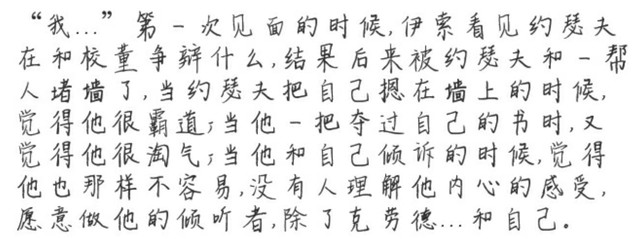 “我…”第一次见面的时候,伊索看见约瑟夫
在和校董争辩什么,结果后来被约瑟夫和一帮
人堵墙了,当约瑟夫把自己摁在墙上的时候,
觉得他很霸道;当他一把夺过自己的书时,又
觉得他很淘气;当他和自己倾诉的时候,觉得
他也那样不容易,没有人理解他内心的感受,
愿意做他的倾听者,除了克劳德…和自己。